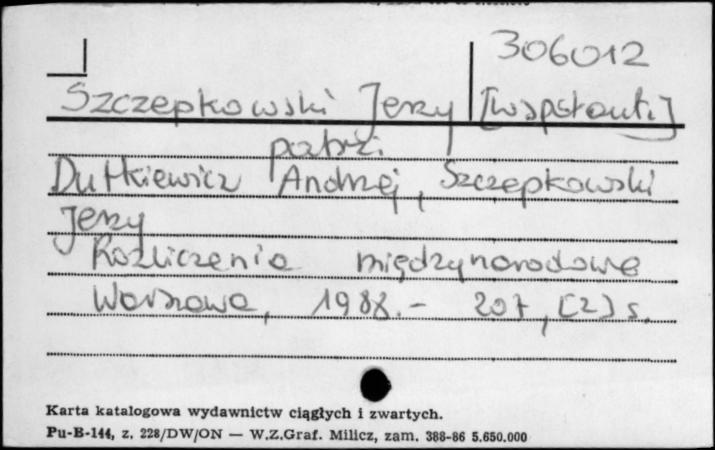 306012
Szczepkowski Jerzy [współaut.]
patrz:
Dutkiewicz Andrzej, Szczepkowski
Jerzy
Rozliczenia międzynarodowe
Warszawa, 1988.- 207, [2] s.
Karta katalogowa wydawnictw ciągłych i zwartych.
Pu-B-144, z. 228/DW/ON — W.Z.Graf. Milicz, zam. 388-86 5.650.000